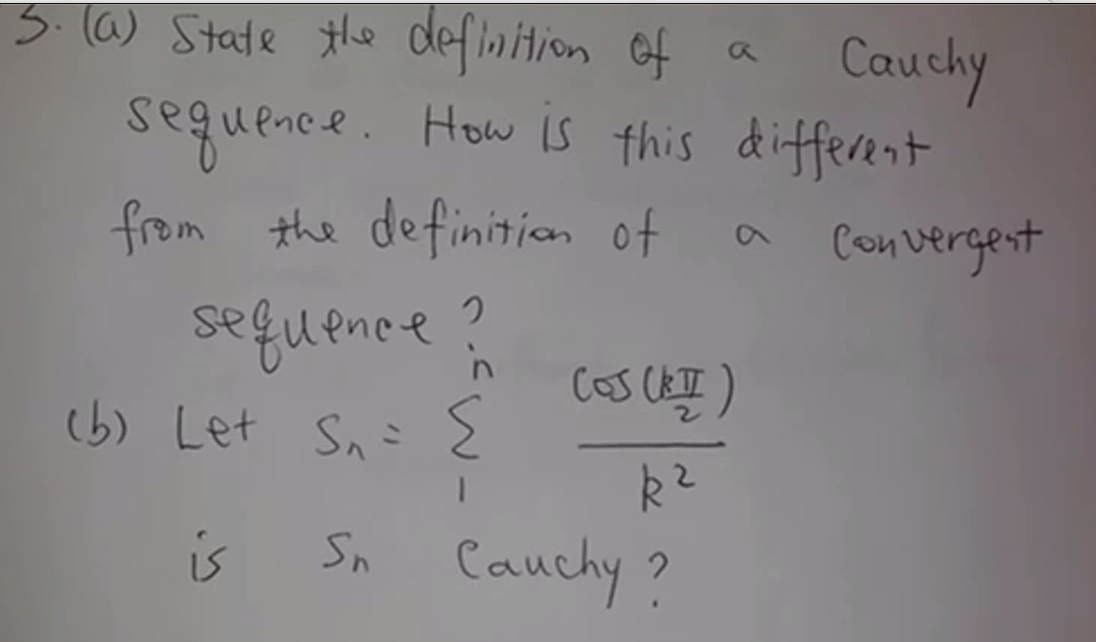 5. (a) State the definition of a Cauchy
sequence. How is this different
from the definition of a convergent
sequence?
(b) Let Sn = n Σ 1 cos(kπ/2) / k²
is Sn Cauchy?